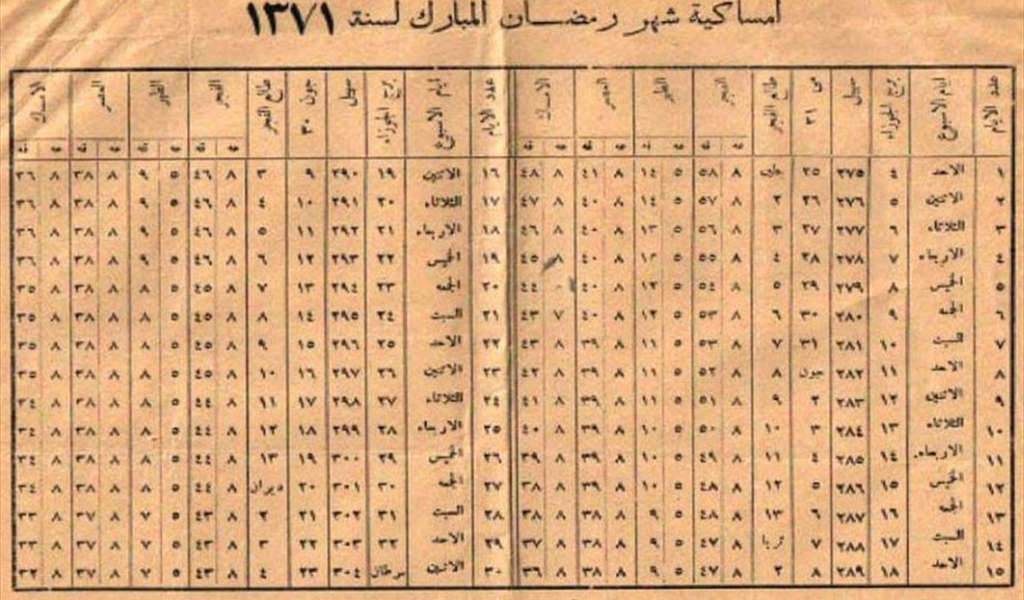 امساكية شهر رمضان المبارك لسنة ١٣٧١
عدد الايام ايام الاسبوع برج الجوزاء سهيل مى ٣١ طالع الفجر الفجر الظهر العصر الامساك عدد الايام ايام الاسبوع برج الجوزاء سهيل جون ٣٠ طالع الفجر الفجر الظهر العصر الامساك
١ الاحد ٤ ٢٧٥ ٢٥ ٨ ٥٨ ٥ ١٤ ٨ ٤١ ٨ ٤٨ ١٦ الاثنين ١٩ ٢٩٠ ٩ ٣ ٨ ٤٦ ٥ ٩ ٨ ٣٨ ٨ ٣٦
٢ الاثنين ٥ ٢٧٦ ٢٦ ٢ ٨ ٥٧ ٥ ١٤ ٨ ٤٠ ٨ ٤٧ ١٧ الثلاثاء ٢٠ ٢٩١ ١٠ ٤ ٨ ٤٦ ٥ ٩ ٨ ٣٨ ٨ ٣٦
٣ الثلاثاء ٦ ٢٧٧ ٢٧ ٣ ٨ ٥٦ ٥ ١٣ ٨ ٤٠ ٨ ٤٦ ١٨ الاربعاء ٢١ ٢٩٢ ١١ ٥ ٨ ٤٦ ٥ ٩ ٨ ٣٨ ٨ ٣٦
٤ الاربعاء ٧ ٢٧٨ ٢٨ ٤ ٨ ٥٥ ٥ ٨ ٤٠ ٨ ٤٥ ١٩ الخميس ٢٢ ٢٩٣ ١٢ ٦ ٨ ٤٦ ٥ ٩ ٨ ٣٨ ٨ ٣٦
٥ الخميس ٨ ٢٧٩ ٢٩ ٥ ٨ ٥٤ ٥ ١٢ ٤٠ ٤٤ ٢٠ الجمعه ٢٣ ٢٩٤ ١٣ ٧ ٨ ٤٥ ٥ ٨ ٨ ٣٨ ٨ ٣٥
٦ الجمعه ٩ ٢٨٠ ٣٠ ٦ ٨ ٥٣ ٥ ١٢ ٨ ٤٠ ٧ ٤٣ ٢١ السبت ٢٤ ٢٩٥ ١٤ ٨ ٨ ٤٥ ٥ ٨ ٨ ٣٨ ٨ ٣٥
٧ السبت ١٠ ٢٨١ ٣١ ٧ ٨ ٥٣ ٥ ١١ ٨ ٣٩ ٨ ٤٣ ٢٢ الاحد ٢٥ ٢٩٦ ١٥ ٩ ٨ ٤٥ ٥ ٨ ٨ ٣٨ ٨ ٣٥
٨ الاحد ١١ ٢٨٢ جون ٨ ٨ ٥٢ ٥ ١١ ٨ ٣٩ ٨ ٤٢ ٢٣ الاثنين ٢٦ ٢٩٧ ١٦ ١٠ ٨ ٤٥ ٥ ٨ ٨ ٣٨ ٨ ٣٥
٩ الاثنين ١٢ ٢٨٣ ٢ ٩ ٨ ٥١ ٥ ١١ ٨ ٣٩ ٨ ٤١ ٢٤ الثلاثاء ٢٧ ٢٩٨ ١٧ ١١ ٨ ٤٤ ٥ ٨ ٨ ٣٨ ٨ ٣٤
١٠ الثلاثاء ١٣ ٢٨٤ ٣ ١٠ ٨ ٥٠ ٥ ١٠ ٨ ٣٩ ٨ ٤٠ ٢٥ الاربعاء ٢٨ ٢٩٩ ١٨ ١٢ ٨ ٤٤ ٥ ٨ ٨ ٣٨ ٨ ٣٤
١١ الاربعاء ١٤ ٢٨٥ ٤ ١١ ٨ ٤٩ ٥ ١٠ ٨ ٣٩ ٨ ٣٩ ٢٦ الخميس ٢٩ ٣٠٠ ١٩ ١٣ ٨ ٤٤ ٥ ٨ ٨ ٣٨ ٨ ٣٤
١٢ الخميس ١٥ ٢٨٦ ٥ ١٢ ٨ ٤٨ ٥ ١٠ ٨ ٣٩ ٨ ٣٨ ٢٧ الجمعه ٣٠ ٣٠١ ٢٠ دبران ٨ ٤٤ ٥ ٨ ٨ ٣٨ ٨ ٣٤
١٣ الجمعه ١٦ ٢٨٧ ٦ ١٣ ٨ ٤٨ ٥ ٩ ٨ ٣٨ ٨ ٣٨ ٢٨ السبت ٣١ ٣٠٢ ٢١ ٢ ٨ ٤٣ ٥ ٧ ٨ ٣٧ ٨ ٣٣
١٤ السبت ١٧ ٢٨٨ ٧ ثريا ٨ ٤٧ ٥ ٩ ٨ ٣٨ ٨ ٣٧ ٢٩ الاحد ٣٢ ٣٠٣ ٢٢ ٣ ٨ ٤٣ ٥ ٧ ٨ ٣٧ ٨ ٣٣
١٥ الاحد ١٨ ٢٨٩ ٨ ٢ ٨ ٤٧ ٥ ٩ ٨ ٣٨ ٨ ٣٦ ٣٠ الاثنين سرطان ٣٠٤ ٢٣ ٤ ٨ ٤٣ ٥ ٧ ٨ ٣٧ ٨ ٣٢